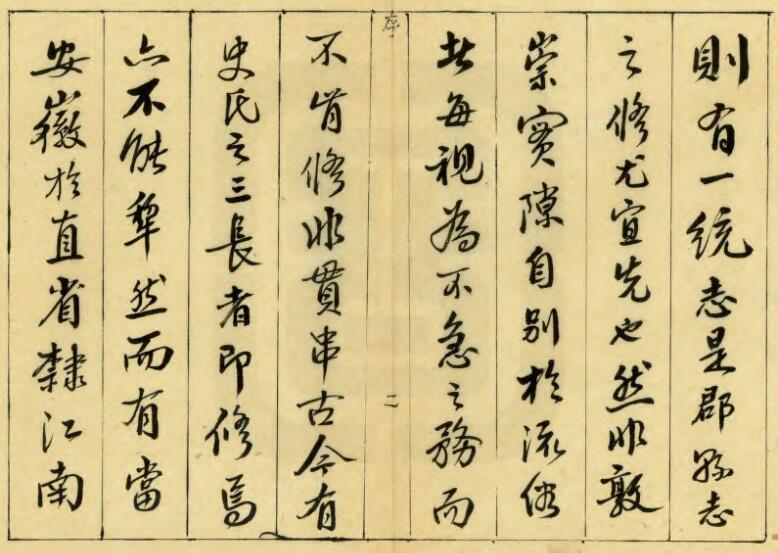 則有一統志是郡縣志
之修尤宜先也然非敦
崇實隙自別於流俗
者每視為不急之務而
序
二
不肯修非貫串古今有
史氏之三長者即修焉
亦不能犁然而有當
安徽於直省隸江南